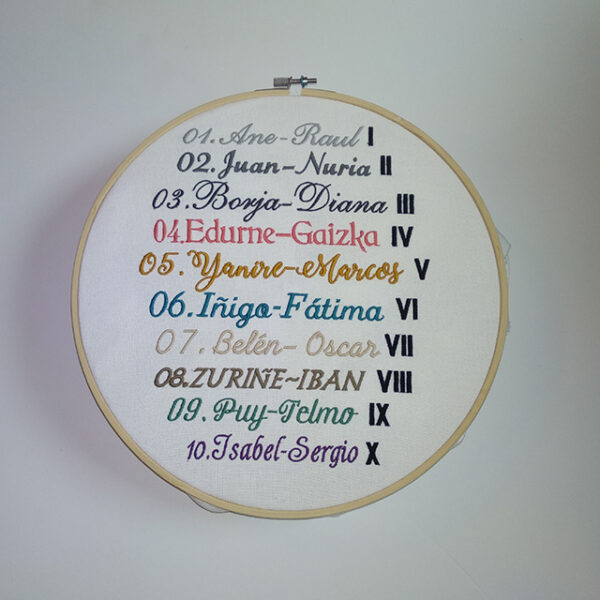 01.Ane-Raul I
02.Juan-Nuria II
03.Borja-Diana III
04.Edurne-Gaizka IV
05.Yanire-Marcos V
06.Iñigo-Fátima VI
07.Belén-Oscar VII
08.ZURIÑE~IBAN VIII
09.Puy-Telmo IX
10.Isabel-Sergio X